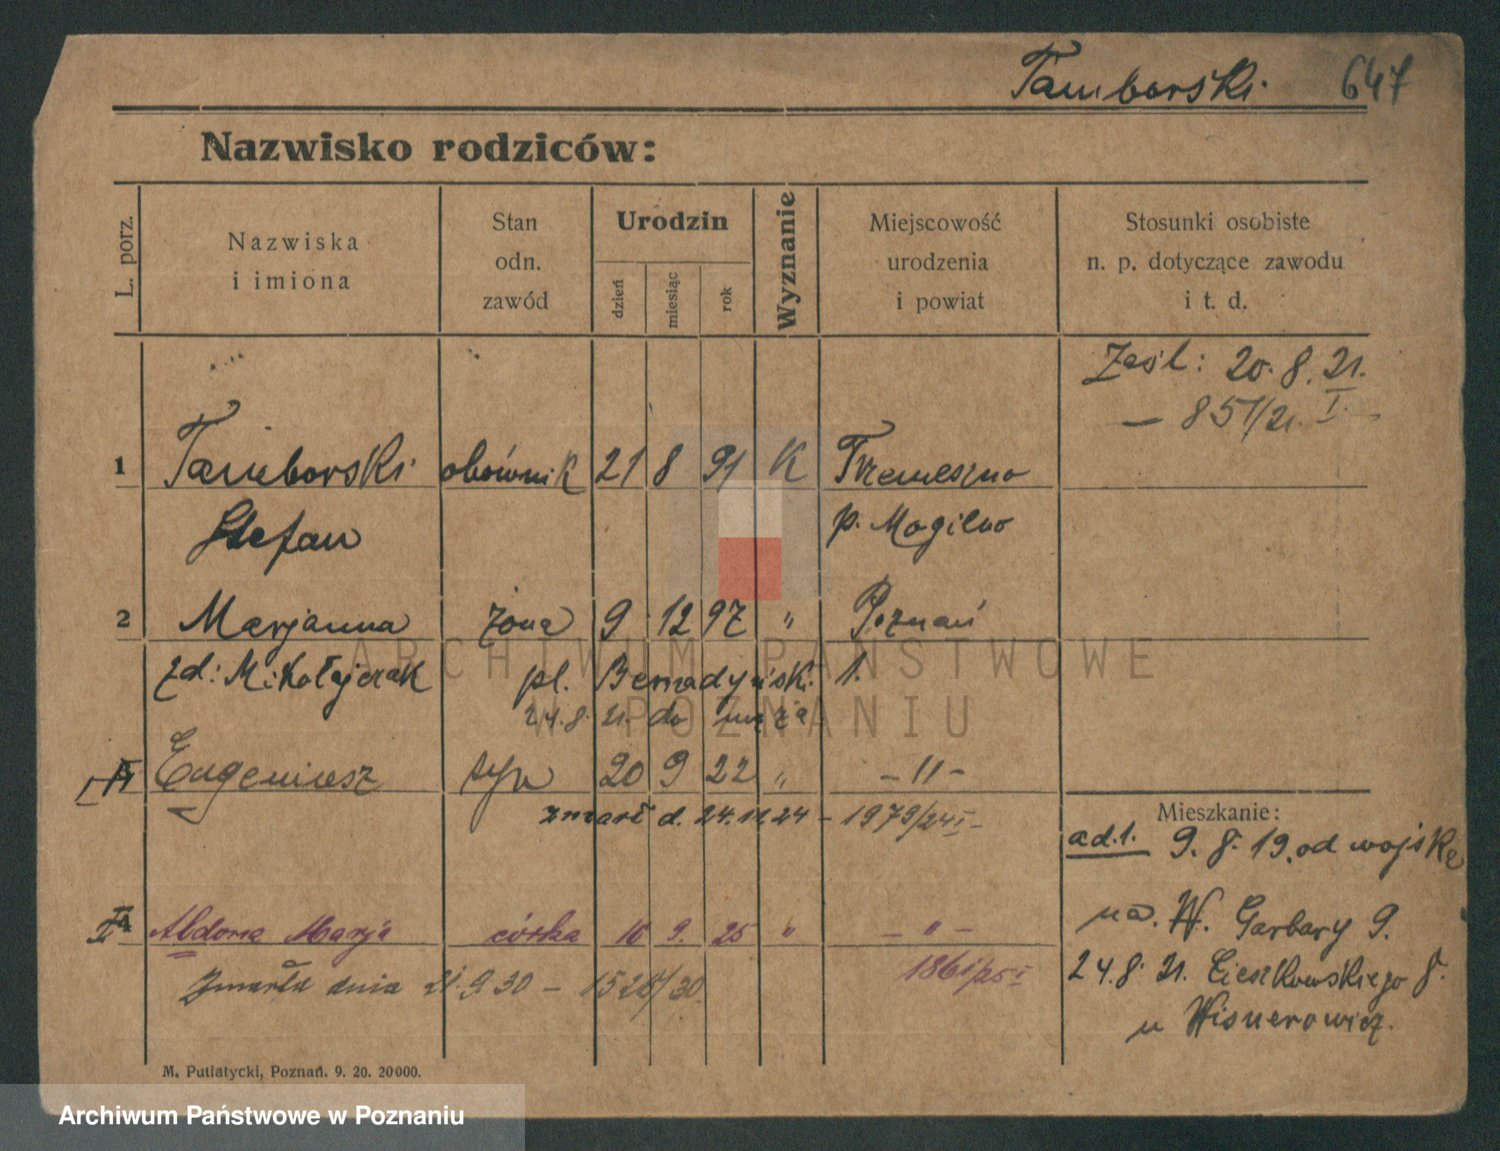 Tamborski 647
Nazwisko rodziców:
L. porz.
Nazwiska
i imiona
Stan
odn.
zawód
Urodzin
dzień
miesiąc
rok
Wyznanie
Miejscowość
urodzenia
i powiat
Stosunki osobiste
n. p. dotyczące zawodu
i t. d.
Zaśl: 20. 8. 21.
— 851/21. I. —
1 Tamborski obównik 21 8 91 K Trzemeszno
Stefan p. Mogilno
2 Marjanna żona 9 12 97 " Poznań
zd: Mikołajczak pl. Bernadyński. 1.
24. 8. 21. do męża
Eugeniusz syn 20 9 22 " – 11 –
zmarł d. 24. 11 24 – 1979/24 I –
Abdona Marja córka 16 9. 25 " – " –
1861/25 I
Zmarła dnia 21. 9. 30 – 1526/30.
Mieszkanie:
ad. 1. 9. 8. 19. od wojska
na. W. Garbary 9.
24. 8. 21. Cieszkowskiego 8.
u Wisnerowicz.
M. Putiatycki, Poznań. 9. 20. 20000.
ARCHIWUM PAŃSTWOWE
W POZNANIU
Archiwum Państwowe w Poznaniu